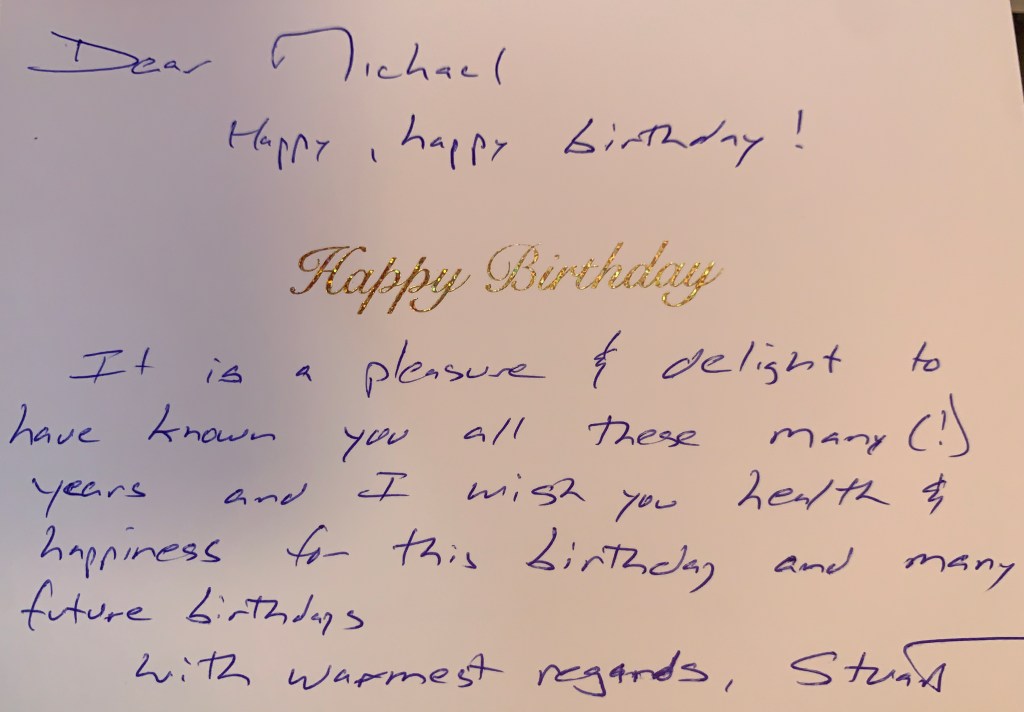 Dear Michael
Happy, happy birthday!
Happy Birthday
It is a pleasure & delight to
have known you all these many (!)
years and I wish you health &
happiness for this birthday and many
future birthdays
with warmest regards, Stuart